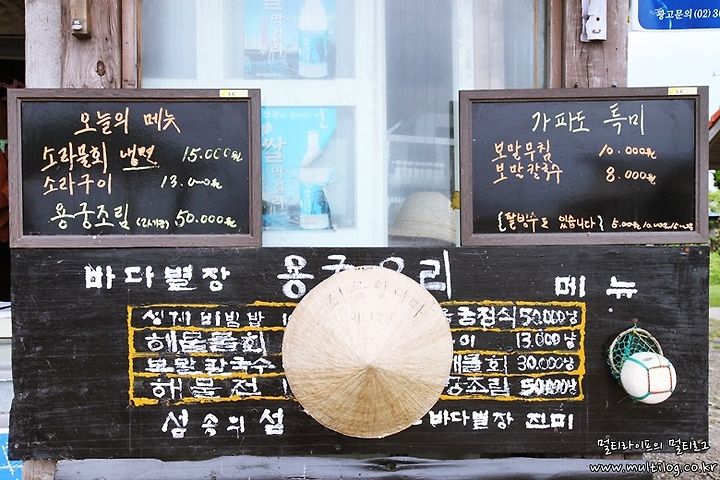 광고문의 (02)
쌀
오늘의 메뉴
소라물회 냉면 15.000원
소라구이 13.000원
용궁조림 50.000원
가파도 특미
보말무침 10.000원
보말칼국수 8.000원
{팥빙수도 있습니다}
바다별장
메뉴
성게비빔밥
정식 50.000냥
해물물회
이 13.000냥
보말칼국수
물회 30.000냥
해물전
궁조림 50.000냥
섬속의 섬
바다별장 진미
멀티라이프의 멀티로그
www.multilog.co.kr